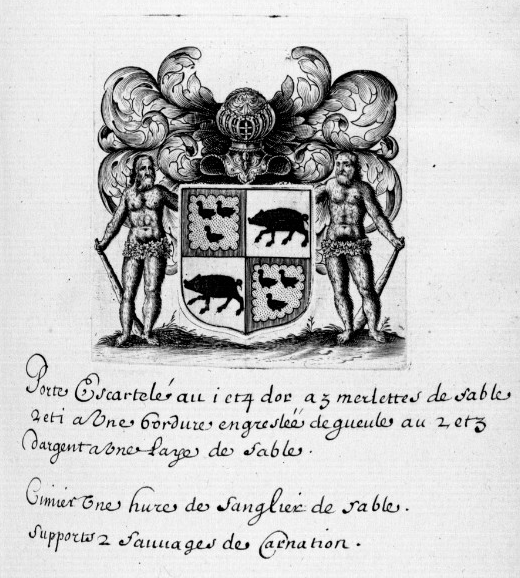 Porte Escartelé au 1 et 4 dor a 3 merlettes de sable
2 et 1 a Une bordure engresleé de gueule au 2 et 3
Dargent a Une Laye de Sable.
Cimier Une hure de Sanglier de sable.
Supports 2 Sauuages de Carnation.